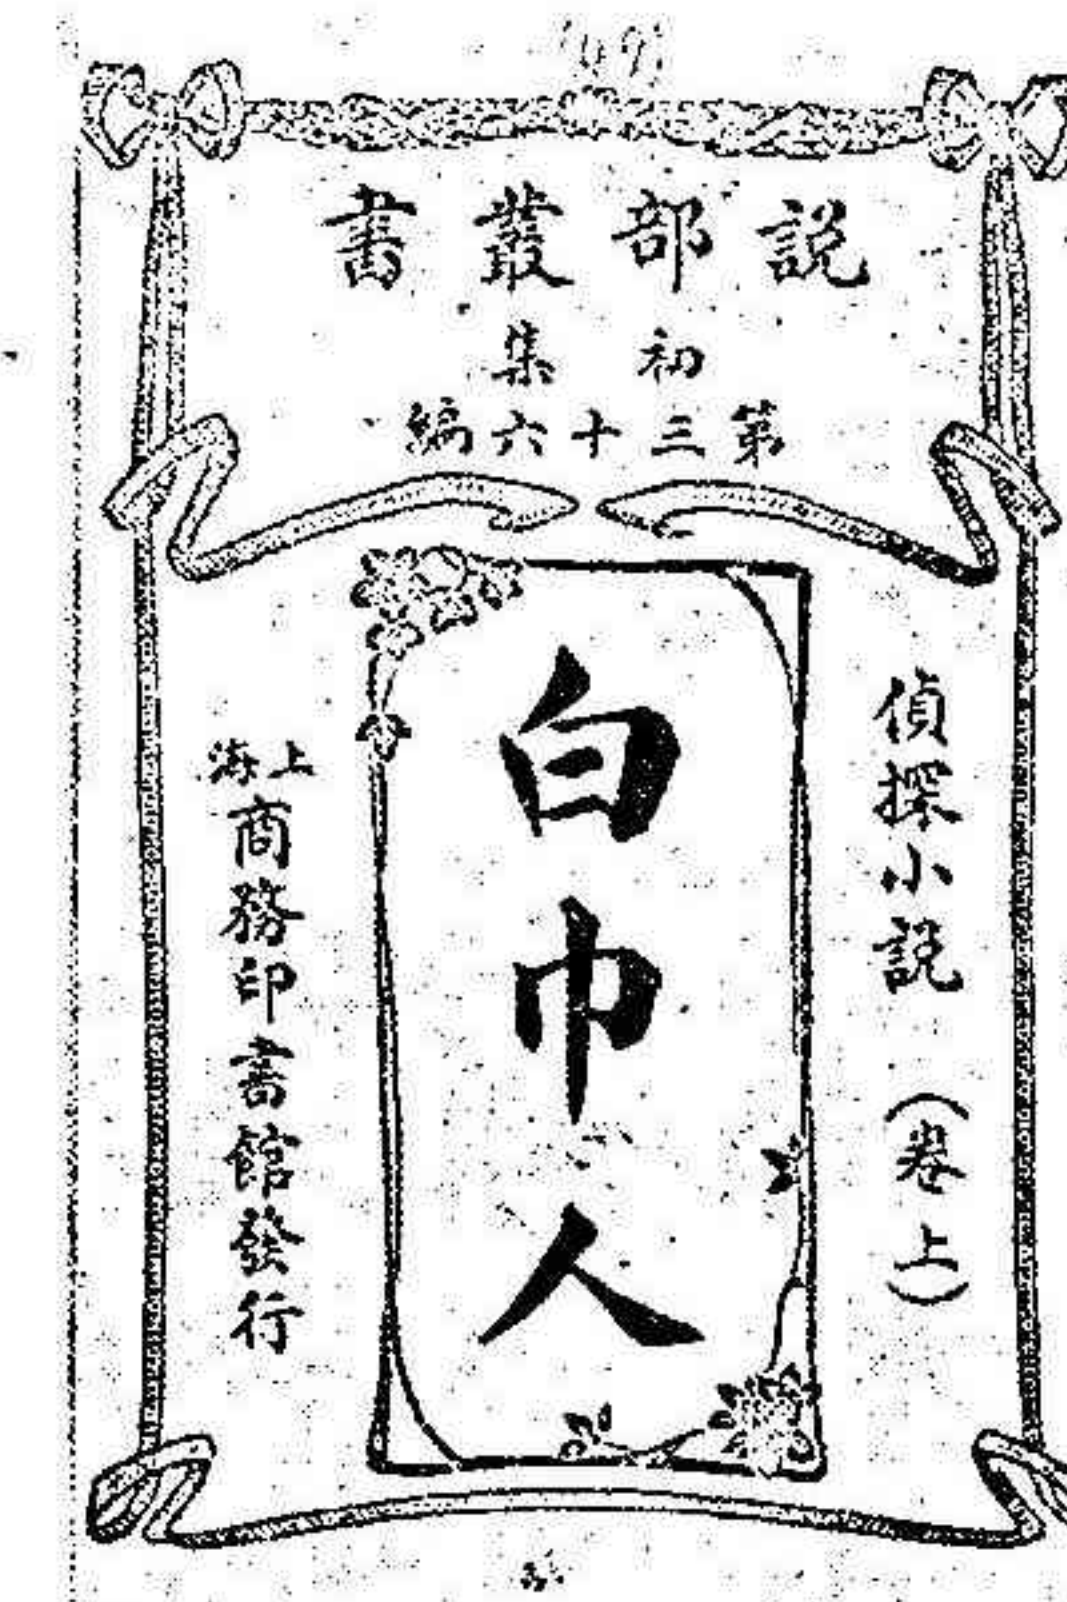 說部叢書
初集
第三十六編
偵探小說（卷上）
白巾人
上海
商務印書館發行